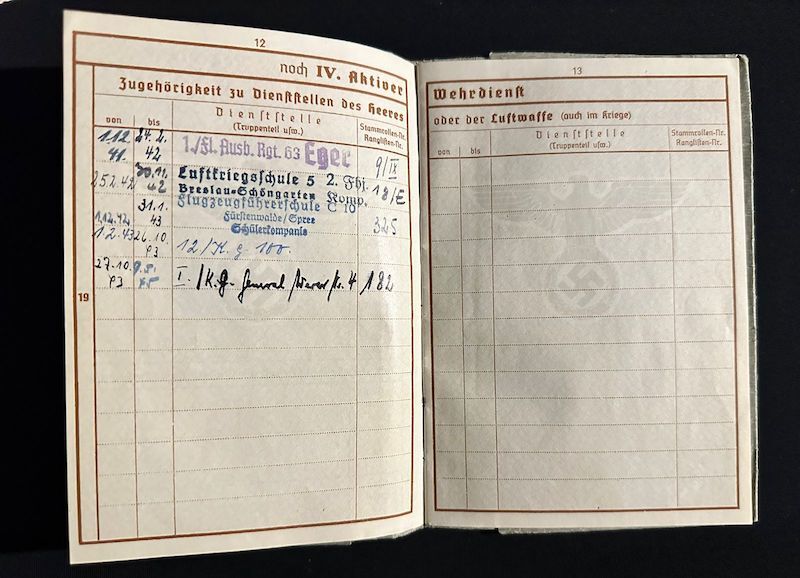 12
noch IV. Aktiver
Zugehörigkeit zu Dienststellen des Heeres
von
bis
Dienststelle
(Truppenteil usw.)
Stammrollen-Nr.
Ranglisten-Nr.
1.12. 24.2.
41. 42
1./Fl. Ausb. Rgt. 63 Eger
9/IX
25.2.42 30.11. 42
Luftkriegsschule 5 2. Fhj.
Breslau-Schöngarten Komp.
18/E
1.12.42 31.1. 43
Flugzeugführerschule C 10
Fürstenwalde/Spree
Schülerkompanie
325
1.2.43 26.10.
43
12/K. g. 100.
27.10. 43
I. /K.G. General Wever Nr. 4
182
19
13
Wehrdienst
oder der Luftwaffe (auch im Kriege)
von
bis
Dienststelle
(Truppenteil usw.)
Stammrollen-Nr.
Ranglisten-Nr.